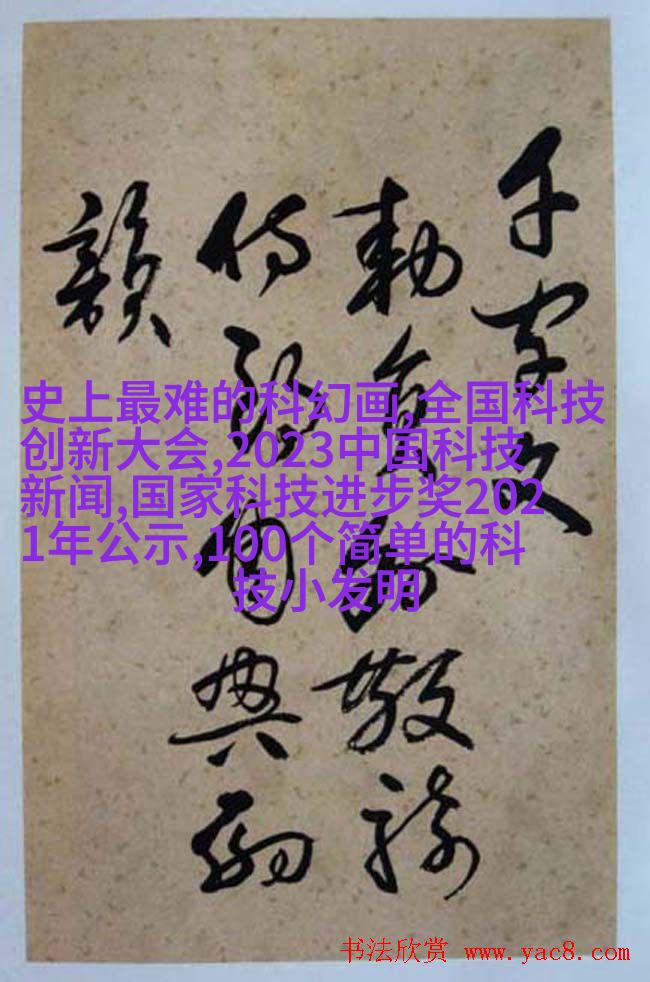 千字文
勅員外散騎
侍郎周興嗣
韻
史上最难的科幻画,全国科技
创新大会,2023中国科技
新闻,国家科技进步奖202
1年公示,100个简单的科
技小发明
书法欣赏 www.yac8.com